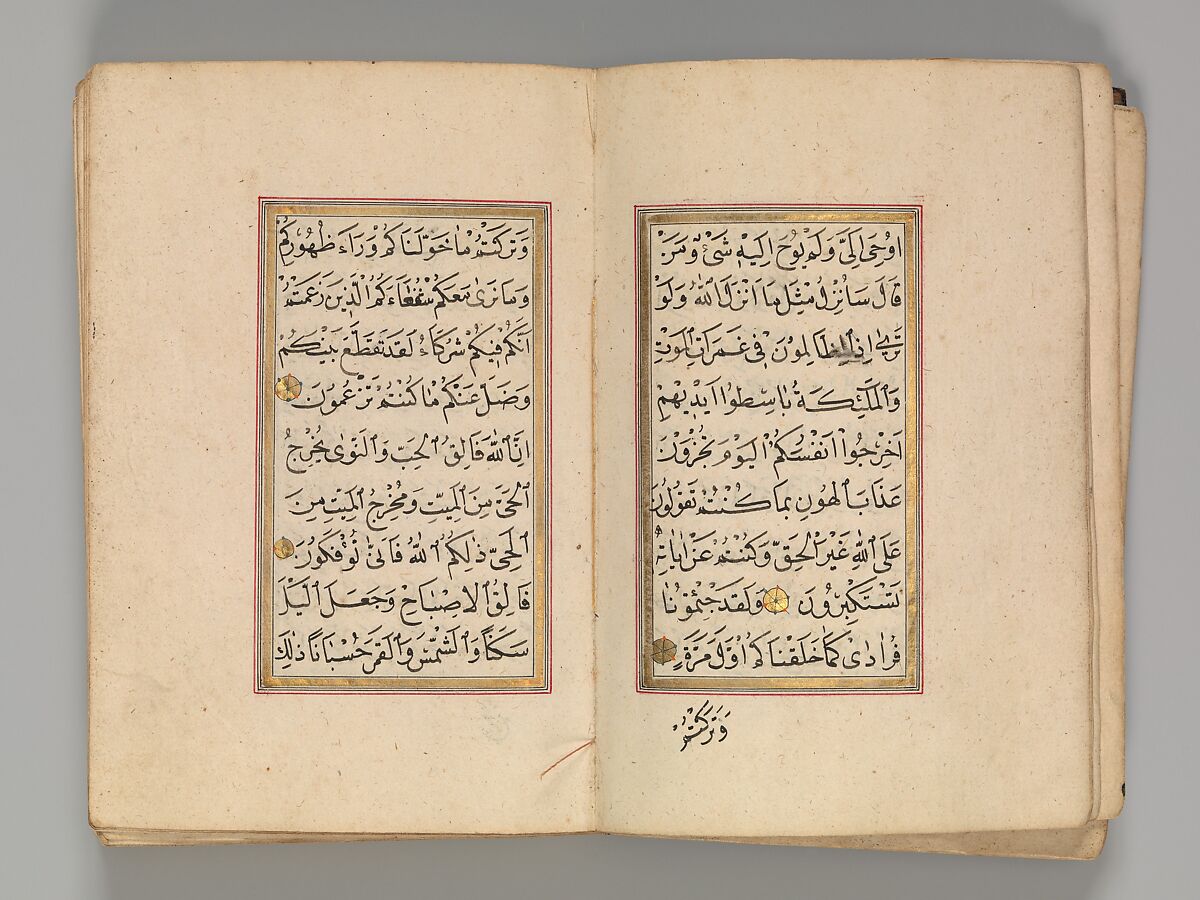 اُوحِىَ اِلَىَّ وَلَمْ يُوحَ اِلَيْهِ شَىْءٌ وَمَنْ
قَالَ سَاُنْزِلُ مِثْلَ مَا اَنْزَلَ اللّٰهُ وَلَوْ
تَرٰى اِذِ الظَّالِمُونَ فِى غَمَرَاتِ الْمَوْتِ
وَالْمَلٰٓئِكَةُ بَاسِطُوا اَيْدِيهِمْ
اَخْرِجُوا اَنْفُسَكُمُ الْيَوْمَ تُجْزَوْنَ
عَذَابَ الْهُونِ بِمَا كُنْتُمْ تَقُولُونَ
عَلَى اللّٰهِ غَيْرَ الْحَقِّ وَكُنْتُمْ عَنْ اٰيَاتِهِ
تَسْتَكْبِرُونَ وَلَقَدْ جِئْتُمُونَا
فُرَادٰى كَمَا خَلَقْنَاكُمْ اَوَّلَ مَرَّةٍ
وَتَرَكْتُمْ
وَتَرَكْتُمْ مَا خَوَّلْنَاكُمْ وَرَاءَ ظُهُورِكُمْ
وَمَا نَرٰى مَعَكُمْ شُفَعَاءَكُمُ الَّذِينَ زَعَمْتُمْ
اَنَّهُمْ فِيكُمْ شُرَكَاءُ لَقَدْ تَقَطَّعَ بَيْنَكُمْ
وَضَلَّ عَنْكُمْ مَا كُنْتُمْ تَزْعُمُونَ
اِنَّ اللّٰهَ فَالِقُ الْحَبِّ وَالنَّوٰى يُخْرِجُ
الْحَىَّ مِنَ الْمَيِّتِ وَمُخْرِجُ الْمَيِّتِ مِنَ
الْحَىِّ ذٰلِكُمُ اللّٰهُ فَاَنّٰى تُؤْفَكُونَ
فَالِقُ الْاِصْبَاحِ وَجَعَلَ الَّيْلَ
سَكَنًا وَالشَّمْسَ وَالْقَمَرَ حُسْبَانًا ذٰلِكَ